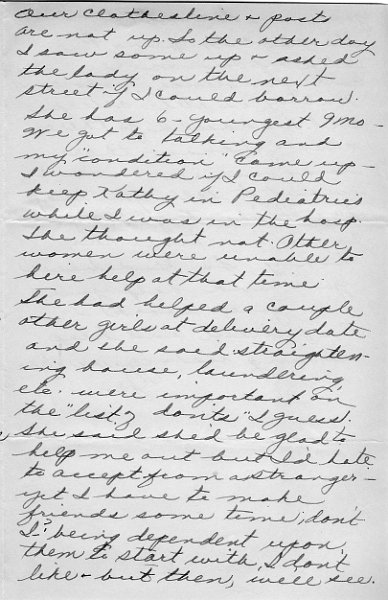 our clothesline + posts
are not up. So the other day
I saw some up + asked
the lady on the next
street if I could borrow.
She has 6 - youngest 9 mo -
We got to talking and
my "condition" came up -
I wondered if I could
keep Kathy in Pediatrics
while I was in the hosp.
She thought not. Other
women were unable to
here help at that time
She had helped a couple
other girls at delivery date
and she said straighten-
ing house, laundering,
etc. were important on
the "list of don'ts" I guess.
She said she'd be glad to
help me out but I'd hate
to accept from a stranger -
yet I have to make
friends some time, don't
I? being dependent upon
them to start with, I don't
like - but then, we'll see.